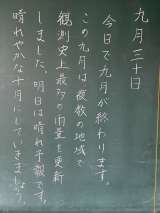 九月三十日
今日で九月が終わります。
この九月は複数の地域で
観測史上最多の雨量を更新
しました。明日は晴れ予報です。
晴れやかな十月にしていきましょう。